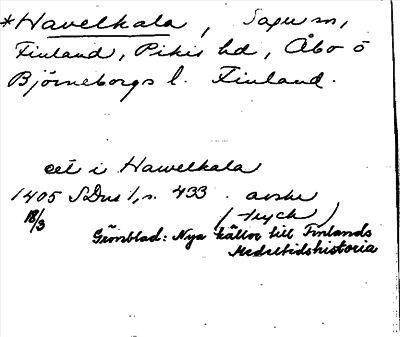 *Havelkala, Sagu sn,
Finland, Pikis hd, Åbo o
Björneborgs l. Finland.
ett i Hawelkala
1405 SDns 1, s. 433 . avskr
18/3 (tryck)
Grönblad: Nya källor till Finlands
Medeltidshistoria